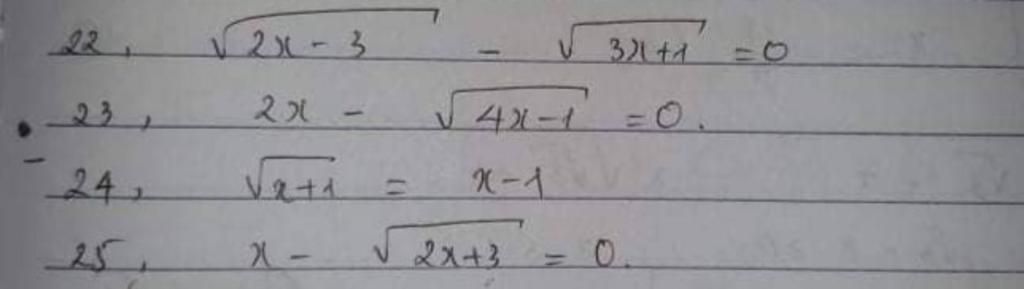 22, √(2x - 3) - √(3x+1) = 0
23, 2x - √(4x-1) = 0.
24, √(x+1) = x-1
25, x - √(2x+3) = 0.